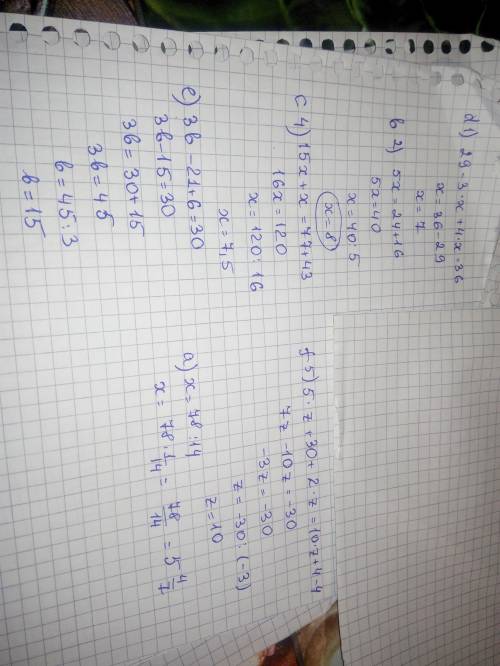 d 1) 29 - 3·x + 4x = 36
x = 36 - 29
x = 7
b 2) 5x = 24 + 16
5x = 40
x = 40 : 5
x = 8
c 4) 15x + x = 77 + 43
16x = 120
x = 120 : 16
x = 7,5
e) 3b - 21 + 6 = 30
3b - 15 = 30
3b = 30 + 15
3b = 45
b = 45 : 3
b = 15
f 5) 5·z + 30 + 2·z = 10·z + 4 - 4
7z - 10z = -30
-3z = -30
z = -30 : (-3)
z = 10
a) x = 78 : 14
x = 78 · 1/14 = 78/14 = 5 4/7